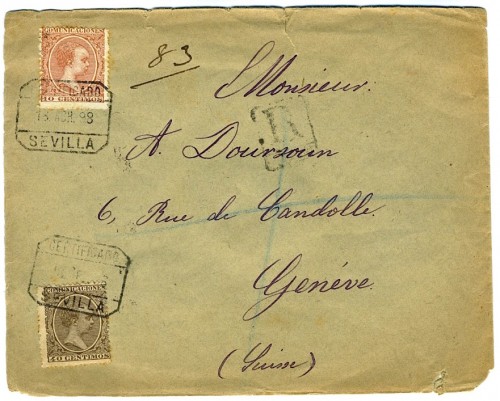 COMUNICACIONES
10 CENTIMOS
83
CERTIFICADO
SEVILLA
R
Monsieur
A.
6, Rue de Candolle.
Genève.
(Suisse)
CERTIFICADO
SEVILLA
COMUNICACIONES
40 CENTIMOS